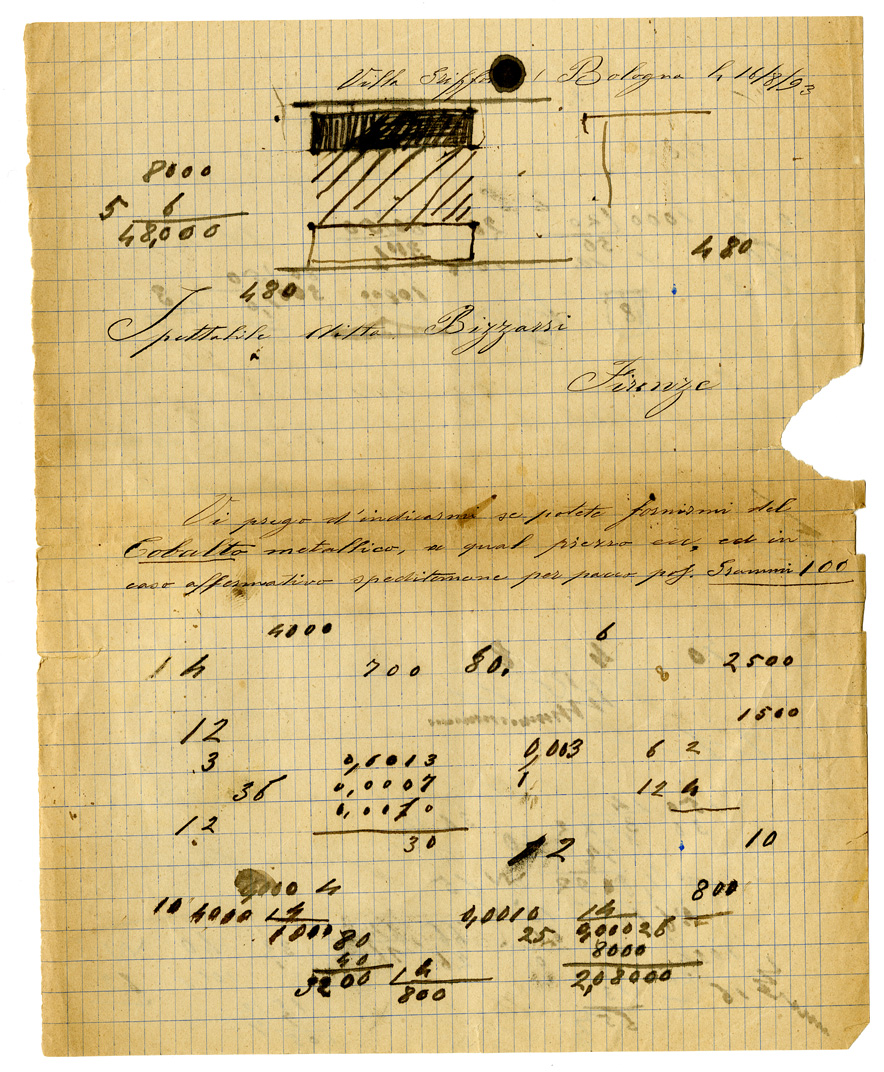 Villa Griffo Bologna li 16/8/93
8000
5 6
48,000
480
480
Spettabile ditta Bizzarri
Firenze
Vi prego d'indicarmi se potete fornirmi del
Cobalto metallico, a qual prezzo ecc, ed in
caso affermativo speditemene per pacco pos. Grammi 100
4000 6
1 4 700 80. 8 2500
12 1500
3 0,6013 0,003 6 2
36 0,0007 1 12 4
0,0070
12 30 12 10
4000 4 800
10 4000 4 0,0010 4
1000 25 0,00026
80 8000
40 2,08000
3200 4
800